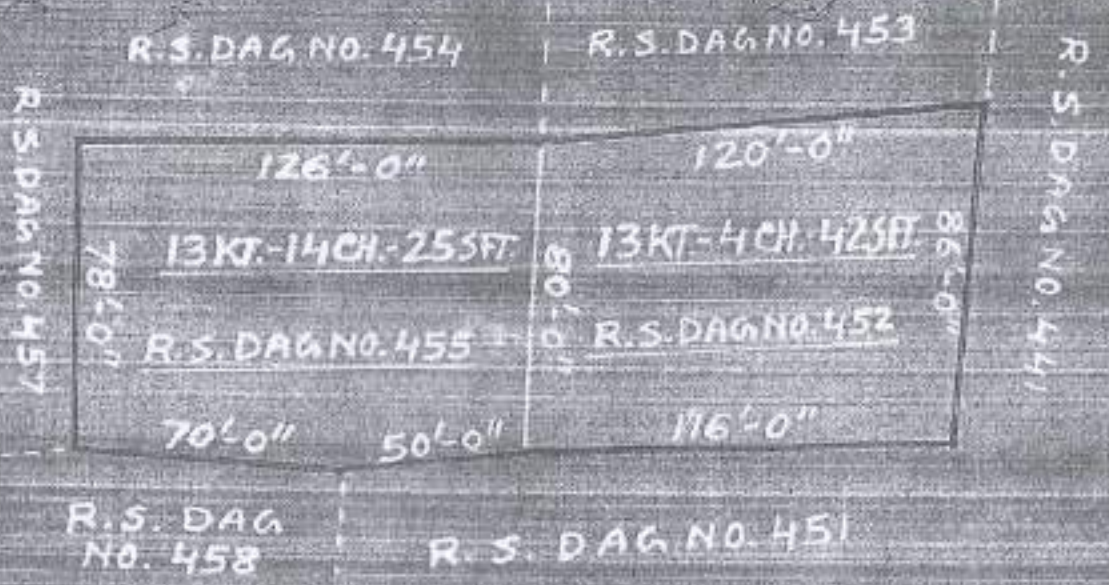 R.S.DAG NO. 454
R.S.DAG NO. 453
R.S.DAG NO. 457
R.S.DAG NO. 441
126'-0"
120'-0"
13KT.-14CH.-25SFT.
13KT-4CH.-42SFT.
78'-0"
80'-0"
86'-0"
R.S.DAG NO. 455
R.S.DAG NO. 452
70'-0"
50'-0"
116'-0"
R.S. DAG
NO. 458
R.S. DAG NO. 451